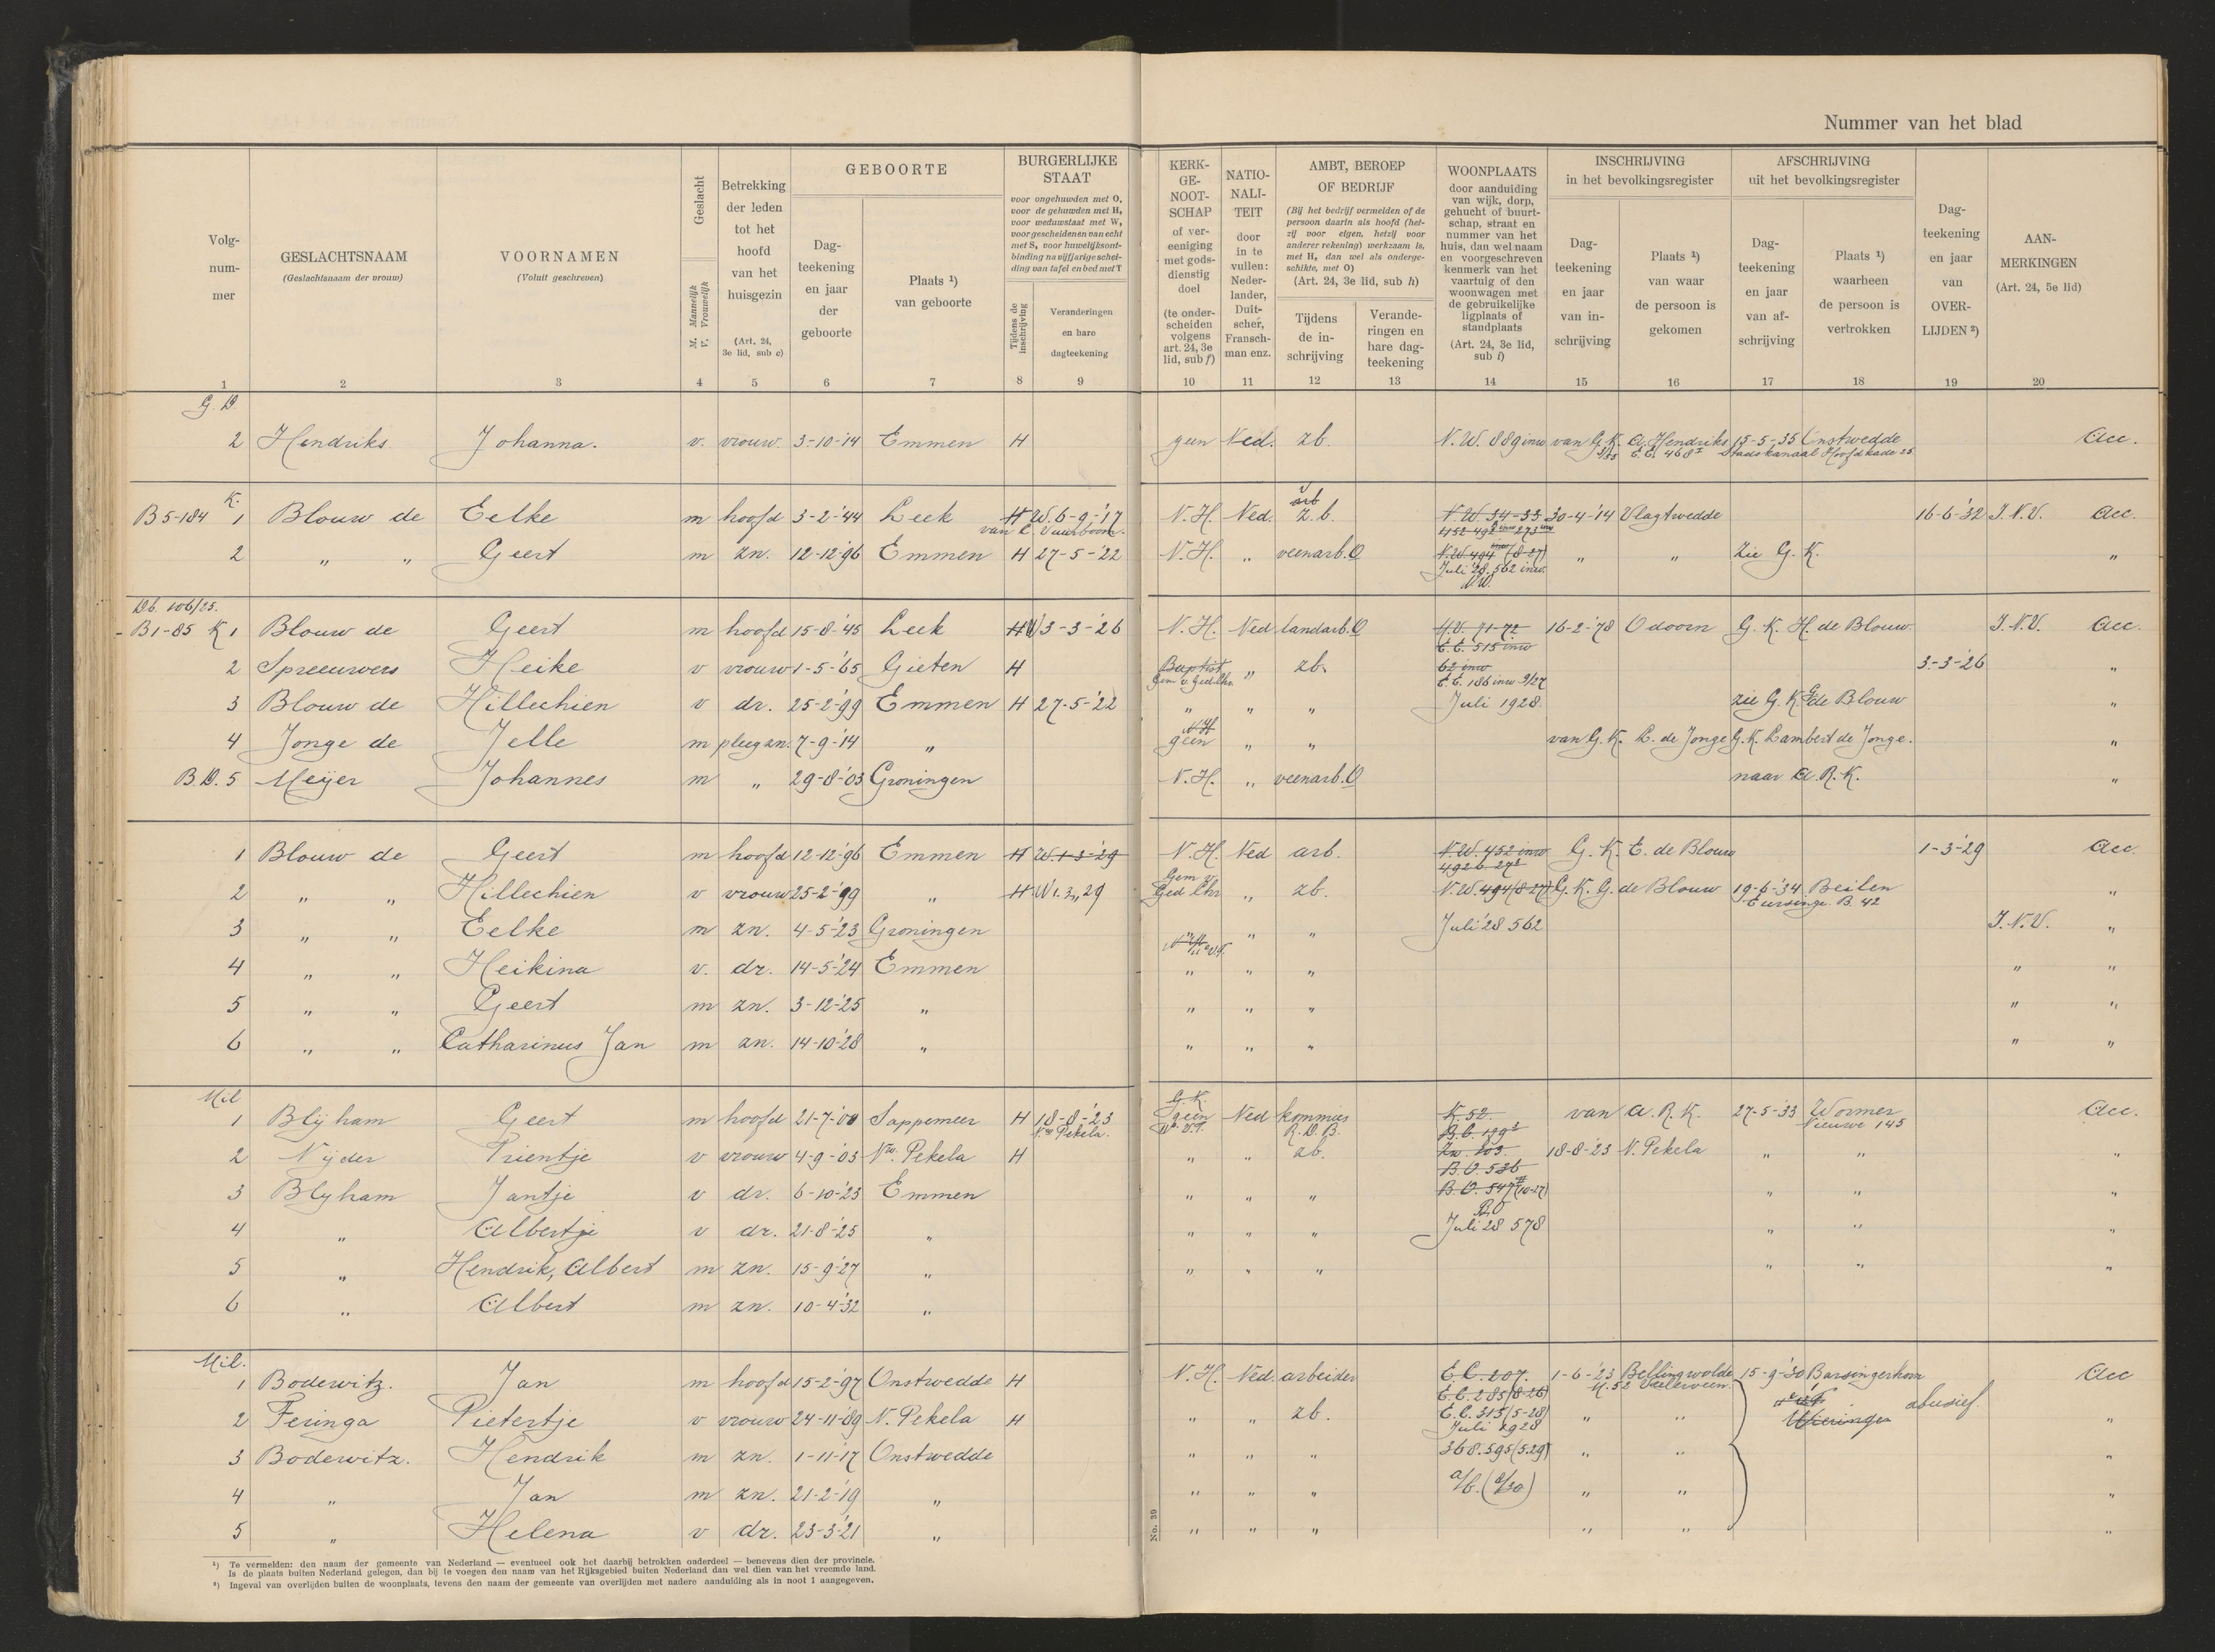 Nummer van het blad
Volg-
num-
mer
GESLACHTSNAAM
(Geslachtsnaam der vrouw)
VOORNAMEN
(Voluit geschreven)
Geslacht
M. Mannelijk
V. Vrouwelijk
Betrekking
der leden
tot het
hoofd
van het
huisgezin
(Art. 24,
3e lid, sub c)
GEBOORTE
Dag-
teekening
en jaar
der
geboorte
Plaats ¹)
van geboorte
BURGERLIJKE
STAAT
voor ongehuwden met O,
voor de gehuwden met H,
voor weduwstaat met W,
voor gescheidenen van echt
met S, voor huwelijksont-
binding na vijfjarige schei-
ding van tafel en bed met T
Tijdens de
inschrijving
Veranderingen
en hare
dagteekening
KERK-
GE-
NOOT-
SCHAP
of ver-
eeniging
met gods-
dienstig
doel
(te onder-
scheiden
volgens
art. 24, 3e
lid, sub f)
NATIO-
NALI-
TEIT
door
in te
vullen:
Neder-
lander,
Duit-
scher,
Fransch-
man enz.
AMBT, BEROEP
OF BEDRIJF
(Bij het bedrijf vermelden of de
persoon daarin als hoofd (het-
zij voor eigen, hetzij voor
anderer rekening) werkzaam is,
met H, dan wel als onderge-
schikte, met O)
(Art. 24, 3e lid, sub h)
Tijdens
de in-
schrijving
Verande-
ringen en
hare dag-
teekening
WOONPLAATS
door aanduiding
van wijk, dorp,
gehucht of buurt-
schap, straat en
nummer van het
huis, dan wel naam
en voorgeschreven
kenmerk van het
vaartuig of den
woonwagen met
de gebruikelijke
ligplaats of
standplaats
(Art. 24, 3e lid,
sub i)
INSCHRIJVING
in het bevolkingsregister
Dag-
teekening
en jaar
van in-
schrijving
Plaats ¹)
van waar
de persoon is
gekomen
AFSCHRIJVING
uit het bevolkingsregister
Dag-
teekening
en jaar
van af-
schrijving
Plaats ¹)
waarheen
de persoon is
vertrokken
Dag-
teekening
en jaar
van
OVER-
LIJDEN ²)
AAN-
MERKINGEN
(Art. 24, 5e lid)
1 2 3 4 5 6 7 8 9 10 11 12 13 14 15 16 17 18 19 20
G. D.
2 Hendriks. Johanna. v. vrouw. 3-10-'14 Emmen H geen Ned. zb. N.W. 889 inw van G.K. A. Hendriks 15-5-35 Onstwedde Acc.
E.E. 468 Stadskanaal Hoofdkade 25
K.
B5-184 1 Blouw de Eelke m hoofd 3-2-'44 Leek H W. 6-9-'17 N.H. Ned. arb z.b. N.W. 34-33 30-4-'14 Vlagtwedde 16-6-'32 I.N.V. Acc.
van L. Vuurboom.
2 " " Geert m zn. 12-12-'96 Emmen H 27-5-'22 N.H. " veenarb. O N.W. 494 (8-27) " " Zie G.K. "
Juli '28. 562 inw.
N.W.
Db. 106/25.
B1-85 K 1 Blouw de Geert m hoofd 15-8-'45 Leek H W 3-3-'26 N.H. Ned landarb. O 71-72 16-2-'78 Odoorn G.K. H. de Blouw. I.N.V. Acc.
E.E. 515 inw
2 Spreeuwers Heike v vrouw 1-5-'65 Gieten H Baptist " zb. 62 inw 3-3-'26 "
Gem v. Ged. Chr. E.E. 186 inw 9/27
3 Blouw de Hillechien v dr. 25-2-'99 Emmen H 27-5-'22 " " " Juli 1928. zie G.K. G de Blouw "
4 Jonge de Jelle m pleegzn. 7-9-'14 " N.H. geen " " van G.K. L. de Jonge G.K. Lambert de Jonge. "
B.D. 5 Meijer Johannes m " 29-8-'03 Groningen N.H. " veenarb. O naar A.R.K. "
1 Blouw de Geert m hoofd 12-12-'96 Emmen H W. 1-3-'29 N.H. Ned arb. N.W. 452 inw G.K. E. de Blouw 1-3-'29 Acc.
2 " " Hillechien v vrouw 25-2-'99 " H W 1.3.,29 Gem v. Ged Chr " zb. N.W. 494 (8-27) G.K. G. de Blouw 19-6-'34 Beilen "
Eursinge B. 42
3 " " Eelke m zn. 4-5-'23 Groningen " " Juli '28 562 I.N.V. "
4 " " Heikina v. dr. 14-5-'24 Emmen " " " " "
5 " " Geert m zn. 3-12-'25 " " " " " "
6 " " Catharinus Jan m zn. 14-10-'28 " " " " " "
Mil
1 Blijham Geert m hoofd 21-7-'00 Sappemeer H 18-8-'23 G.K. geen Ned kommies K. 52. van A.R.K. 27-5-'33 Wormer Acc.
Nw. Pekela. R.D.B. Nieuwe 145
2 Nijder Trientje v vrouw 4-9-'03 Nw. Pekela H " " zb. Zw. 103 18-8-'23 N. Pekela " " "
B.O. 536
3 Blyham Jantje v dr. 6-10-'23 Emmen " " " B.O. 547 (10-27) " " "
B.O
4 " Albertje v dr. 21-8-'25 " " " " Juli 28 578 " " "
5 " Hendrik, Albert m zn. 15-9-'27 " " " " " " "
6 " Albert m zn. 10-4-'32 "
Mil.
1 Bodewitz. Jan m hoofd 15-2-'97 Onstwedde H N.H. Ned arbeider E.C. 207. 1-6-'23 Bellingwolde 15-9-'30 Barsingerhorn Acc
E.C. 285 (8-26)
2 Feringa Pietertje v vrouw 24-11-'89 N. Pekela H " " zb. E.C. 313 (5-28) " " Wieringen abusief. "
Juli 1928
3 Bodewitz. Hendrik m zn. 1-11-'17 Onstwedde " " " 368. 595 (5.29) " " "
4 " Jan m zn. 21-2-'19 " " " " a/b. (8/30) " " "
5 " Helena v dr. 23-3-'21 " " " " " " "
No. 39
¹) Te vermelden: den naam der gemeente van Nederland — eventueel ook het daarbij betrokken onderdeel — benevens dien der provincie.
Is de plaats buiten Nederland gelegen, dan bij te voegen den naam van het Rijksgebied buiten Nederland dan wel dien van het vreemde land.
²) Ingeval van overlijden buiten de woonplaats, tevens den naam der gemeente van overlijden met nadere aanduiding als in noot 1 aangegeven.